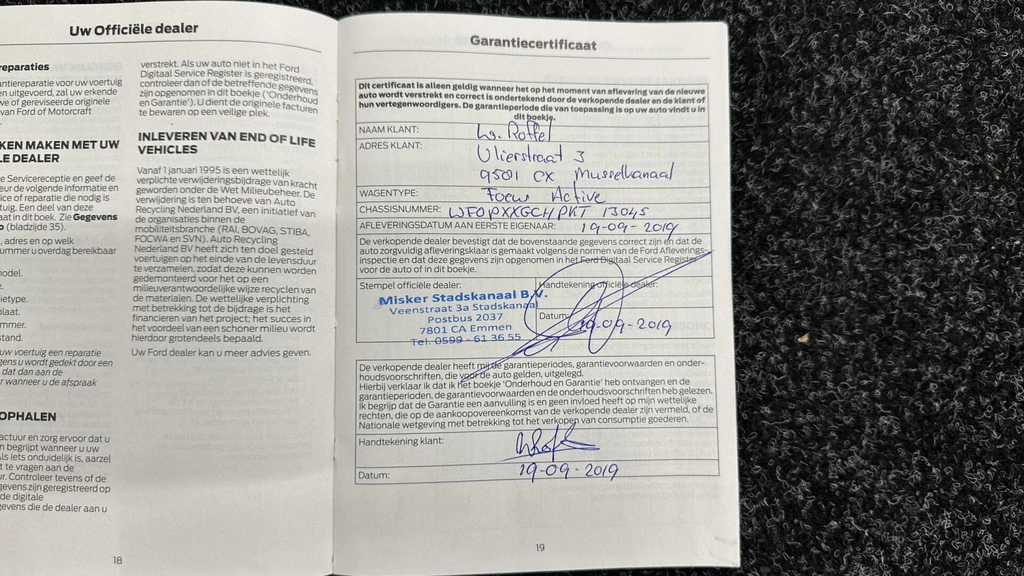 Uw Officiële dealer
reparaties
antiereparatie voor uw voertuig
en uitgevoerd, zal uw erkende
we of gereviseerde originele
van Ford of Motorcraft
KEN MAKEN MET UW
LE DEALER
e Servicereceptie en geef de
eur de volgende informatie en
ice of reparatie die nodig is
tuig. Een deel van deze
aat in dit boek. Zie Gegevens
o (bladzijde 35).
, adres en op welk
ummer u overdag bereikbaar
model.
ietype.
plaat.
mmer.
stand.
uw voertuig een reparatie
gens u wordt gedekt door een
dat dan aan de
r wanneer u de afspraak
OPHALEN
actuur en zorg ervoor dat u
n begrijpt wanneer u uw
Als iets onduidelijk is, aarzel
t te vragen aan de
r. Controleer tevens of de
gevens zijn geregistreerd op
de digitale
gevens die de dealer aan u
verstrekt. Als uw auto niet in het Ford
Digitaal Service Register is geregistreerd,
controleer dan of de betreffende gegevens
zijn opgenomen in dit boekje ('Onderhoud
en Garantie'). U dient de originele facturen
te bewaren op een veilige plek.
INLEVEREN VAN END OF LIFE
VEHICLES
Vanaf 1 januari 1995 is een wettelijk
verplichte verwijderingsbijdrage van kracht
geworden onder de Wet Milieubeheer. De
verwijdering is ten behoeve van Auto
Recycling Nederland BV, een initiatief van
de organisaties binnen de
mobiliteitsbranche (RAI, BOVAG, STIBA,
FOCWA en SVN). Auto Recycling
Nederland BV heeft zich ten doel gesteld
voertuigen op het einde van de levensduur
te verzamelen, zodat deze kunnen worden
gedemonteerd voor het op een
milieuverantwoordelijke wijze recyclen van
de materialen. De wettelijke verplichting
met betrekking tot de bijdrage is het
financieren van het project; het succes in
het voordeel van een schoner milieu wordt
hierdoor grotendeels bepaald.
Uw Ford dealer kan u meer advies geven.
18
Garantiecertificaat
Dit certificaat is alleen geldig wanneer het op het moment van aflevering van de nieuwe
auto wordt verstrekt en correct is ondertekend door de verkopende dealer en de klant of
hun vertegenwoordigers. De garantieperiode die van toepassing is op uw auto vindt u in
dit boekje.
NAAM KLANT: Roffel
ADRES KLANT: Vlierstraat 3
9501 CX Musselkanaal
WAGENTYPE: Focus Active
CHASSISNUMMER: WF0PXXGCHPKT 13045
AFLEVERINGSDATUM AAN EERSTE EIGENAAR: 19-09-2019
De verkopende dealer bevestigt dat de bovenstaande gegevens correct zijn en dat de
auto zorgvuldig afleveringsklaar is gemaakt volgens de normen van de Ford Afleverings-
inspectie en dat deze gegevens zijn opgenomen in het Ford Digitaal Service Register
voor de auto of in dit boekje.
Stempel officiële dealer: Handtekening officiële dealer:
Misker Stadskanaal B.V.
Veenstraat 3a Stadskanaal
Postbus 2037
7801 CA Emmen
Tel. 0599 - 61 36 55
Datum: 19-09-2019
De verkopende dealer heeft mij de garantieperiodes, garantievoorwaarden en onder-
houdsvoorschriften, die voor de auto gelden, uitgelegd.
Hierbij verklaar ik dat ik het boekje 'Onderhoud en Garantie' heb ontvangen en de
garantieperioden, de garantievoorwaarden en de onderhoudsvoorschriften heb gelezen.
Ik begrijp dat de Garantie een aanvulling is en geen invloed heeft op mijn wettelijke
rechten, die op de aankoopovereenkomst van de verkopende dealer zijn vermeld, of de
Nationale wetgeving met betrekking tot het verkopen van consumptie goederen.
Handtekening klant:
Datum: 19-09-2019
19